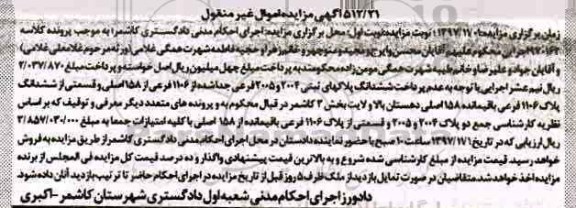 ۵۱۲/۲۱ آگهی مزایده اموال غیر منقول
زمان برگزاری مزایده: ۱۳۹۷/۱۱/۷ نوبت مزایده: نوبت اول: محل برگزاری مزایده: اجرای احکام مدنی دادگستری کاشمر: به موجب پرونده کلاسه
اجرایی محکوم علیهم آقایان محسن و ایرج و مجید و منوچهر و خانم زهرا و حمیده فاطمه شهرت همگی غلامی (ورثه مرحوم غلامعلی غلامی)
و آقایان جواد و علیرضا و خانم طیبه شهرت همگی مومن زاده محکومند به پرداخت مبلغ چهل میلیون ریال اصل خواسته و پرداخت مبلغ ۲/۰۳۷/۸۷۰
ریال نیم عشر اجرایی با توجه به عدم پرداخت ششدانگ پلاکهای ثبتی ۲۰۰۴ و ۲۰۰۵ فرعی جدا شده از ۱۱۰۶ فرعی از ۱۵۸ اصلی و قسمتی از ششدانگ
پلاک ۱۱۰۶ فرعی باقیمانده ۱۵۸ اصلی دهستان بالا ولایت بخش ۳ کاشمر در قبال محکوم به و پرونده های متعدد دیگر معرفی و توقیف که بر اساس
نظریه کارشناسی جمع دو پلاک ۲۰۰۴ و ۲۰۰۵ و قسمتی از پلاک ۱۱۰۶ فرعی باقیمانده از ۱۵۸ اصلی با کلیه امتیازات جمعا به مبلغ ۳/۸۵۷/۰۳۰/۰۰۰
ریال ارزیابی که در تاریخ ۱۳۹۷/۱۱/۷ ساعت ۱۰ صبح با حضور نماینده دادستان در محل اجرای احکام مدنی دادگستری کاشمر از طریق مزایده به فروش
خواهد رسید. قیمت مزایده از مبلغ کارشناسی شده شروع و به بالاترین قیمت پیشنهادی واگذار و ده درصد قیمت کل مزایده فی المجلس از برنده
مزایده اخذ خواهد شد. متقاضیان در صورت تمایل بازدید از ملک ظرف ۵ روز قبل از تاریخ مزایده در اجرای احکام حاضر تا ترتیب بازدید آنان داده شود.
دادورز اجرای احکام مدنی شعبه اول دادگستری شهرستان کاشمر - اکبری